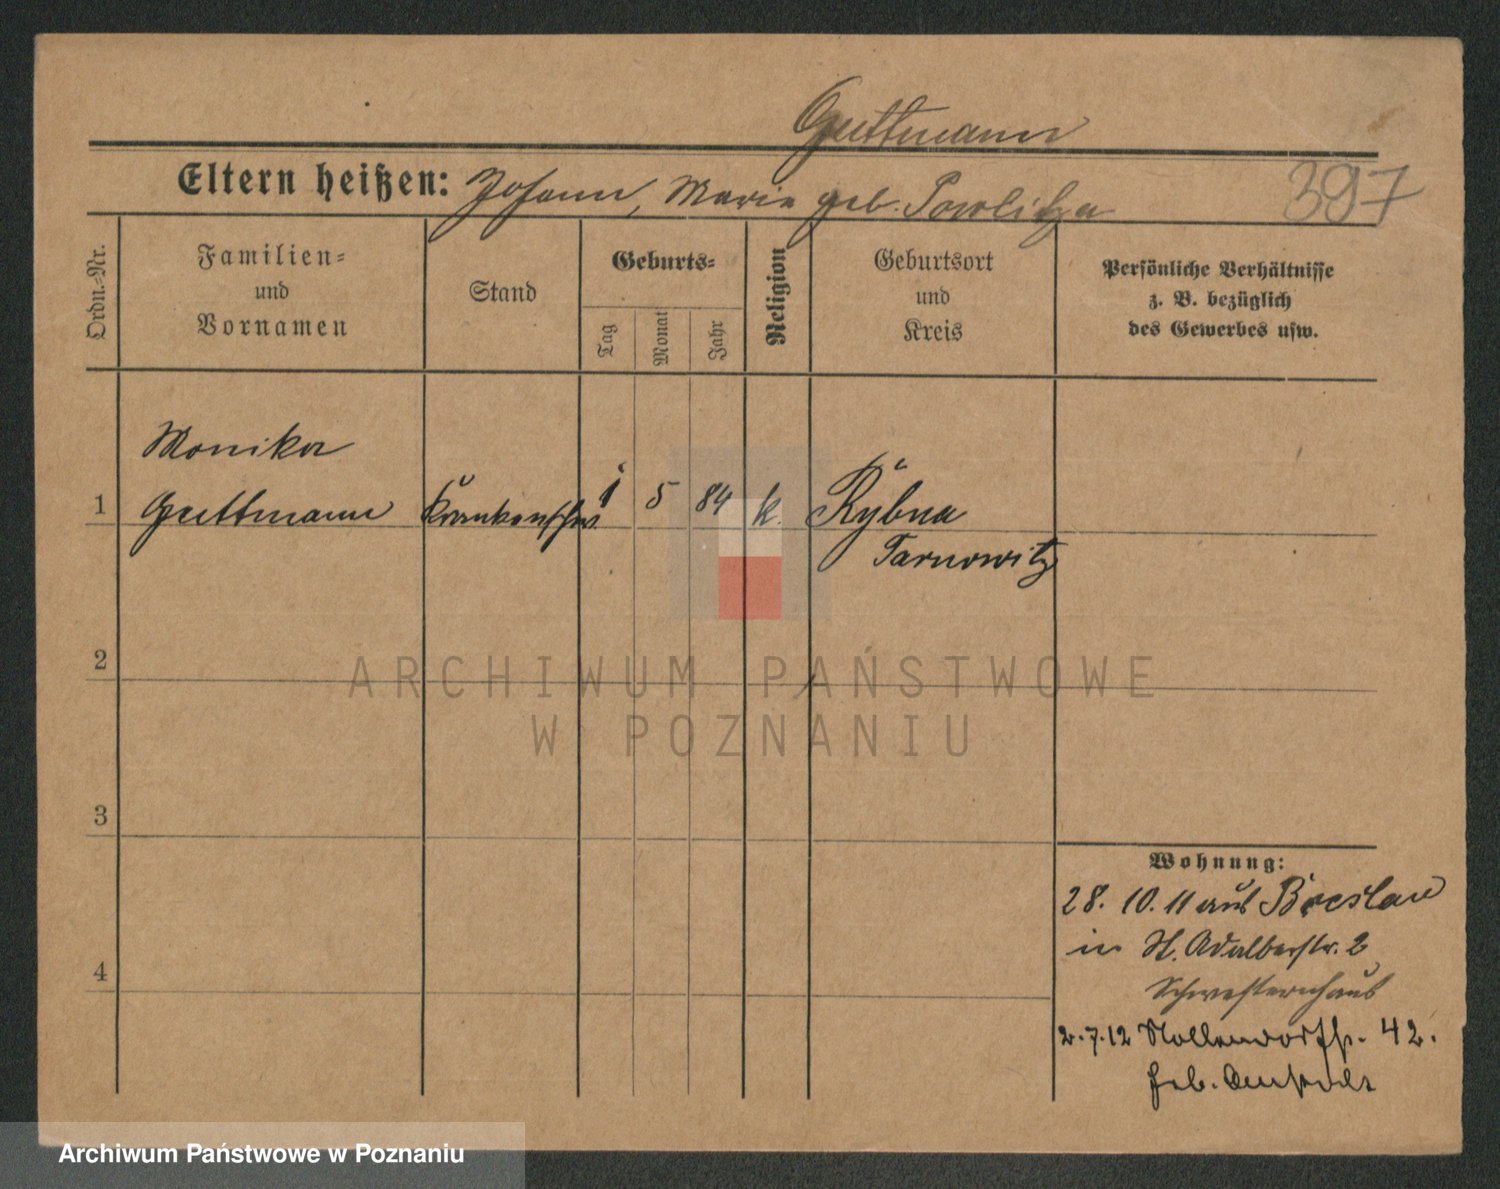 Guttmann
Eltern heißen: Johann, Marie geb. Pawlitza
397
Ordn.-Nr.
Familien-
und
Vornamen
Stand
Geburts-
Tag
Monat
Jahr
Religion
Geburtsort
und
Kreis
Persönliche Verhältnisse
z. B. bezüglich
des Gewerbes usw.
Monika
1 Guttmann Krankenschw. 1 5 84 k. Rybna
Tarnowitz
2
ARCHIWUM PAŃSTWOWE
W POZNANIU
3
Wohnung:
28. 10. 11 aus Breslau
in St. Adalbertstr. 2
Schwesternhaus
4
2.7.12 Nollendorfstr. 42.
Archiwum Państwowe w Poznaniu